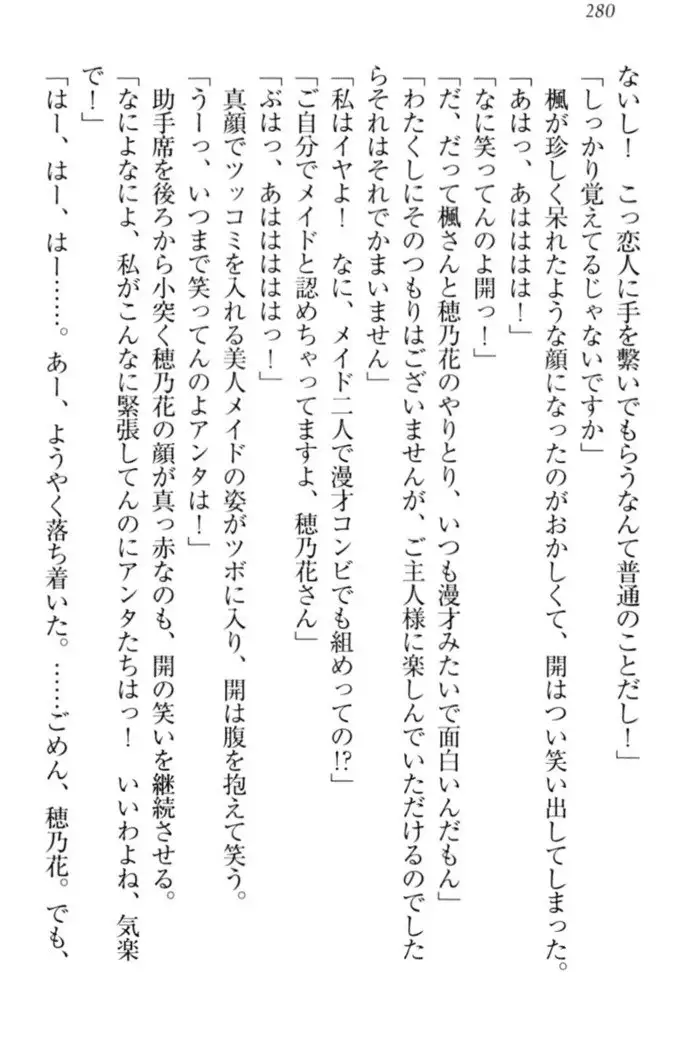 280
ないし！　こっ恋人に手を繋いでもらうなんて普通のことだし！」
「しっかり覚えてるじゃないですか」
　楓が珍しく呆れたような顔になったのがおかしくて、開はつい笑い出してしまった。
「あはっ、あはははは！」
「なに笑ってんのよ開っ！」
「だ、だって楓さんと穂乃花のやりとり、いつも漫才みたいで面白いんだもん」
「わたくしにそのつもりはございませんが、ご主人様に楽しんでいただけるのでした
らそれはそれでかまいません」
「私はイヤよ！　なに、メイド二人で漫才コンビでも組めっての!?」
「ご自分でメイドと認めちゃってますよ、穂乃花さん」
「ぶはっ、あはははははっ！」
　真顔でツッコミを入れる美人メイドの姿がツボに入り、開は腹を抱えて笑う。
「うーっ、いつまで笑ってんのよアンタは！」
　助手席を後ろから小突く穂乃花の顔が真っ赤なのも、開の笑いを継続させる。
「なによなによ、私がこんなに緊張してんのにアンタたちはっ！　いいわよね、気楽
で！」
「はー、はー、はー……。あー、ようやく落ち着いた。……ごめん、穂乃花。でも、